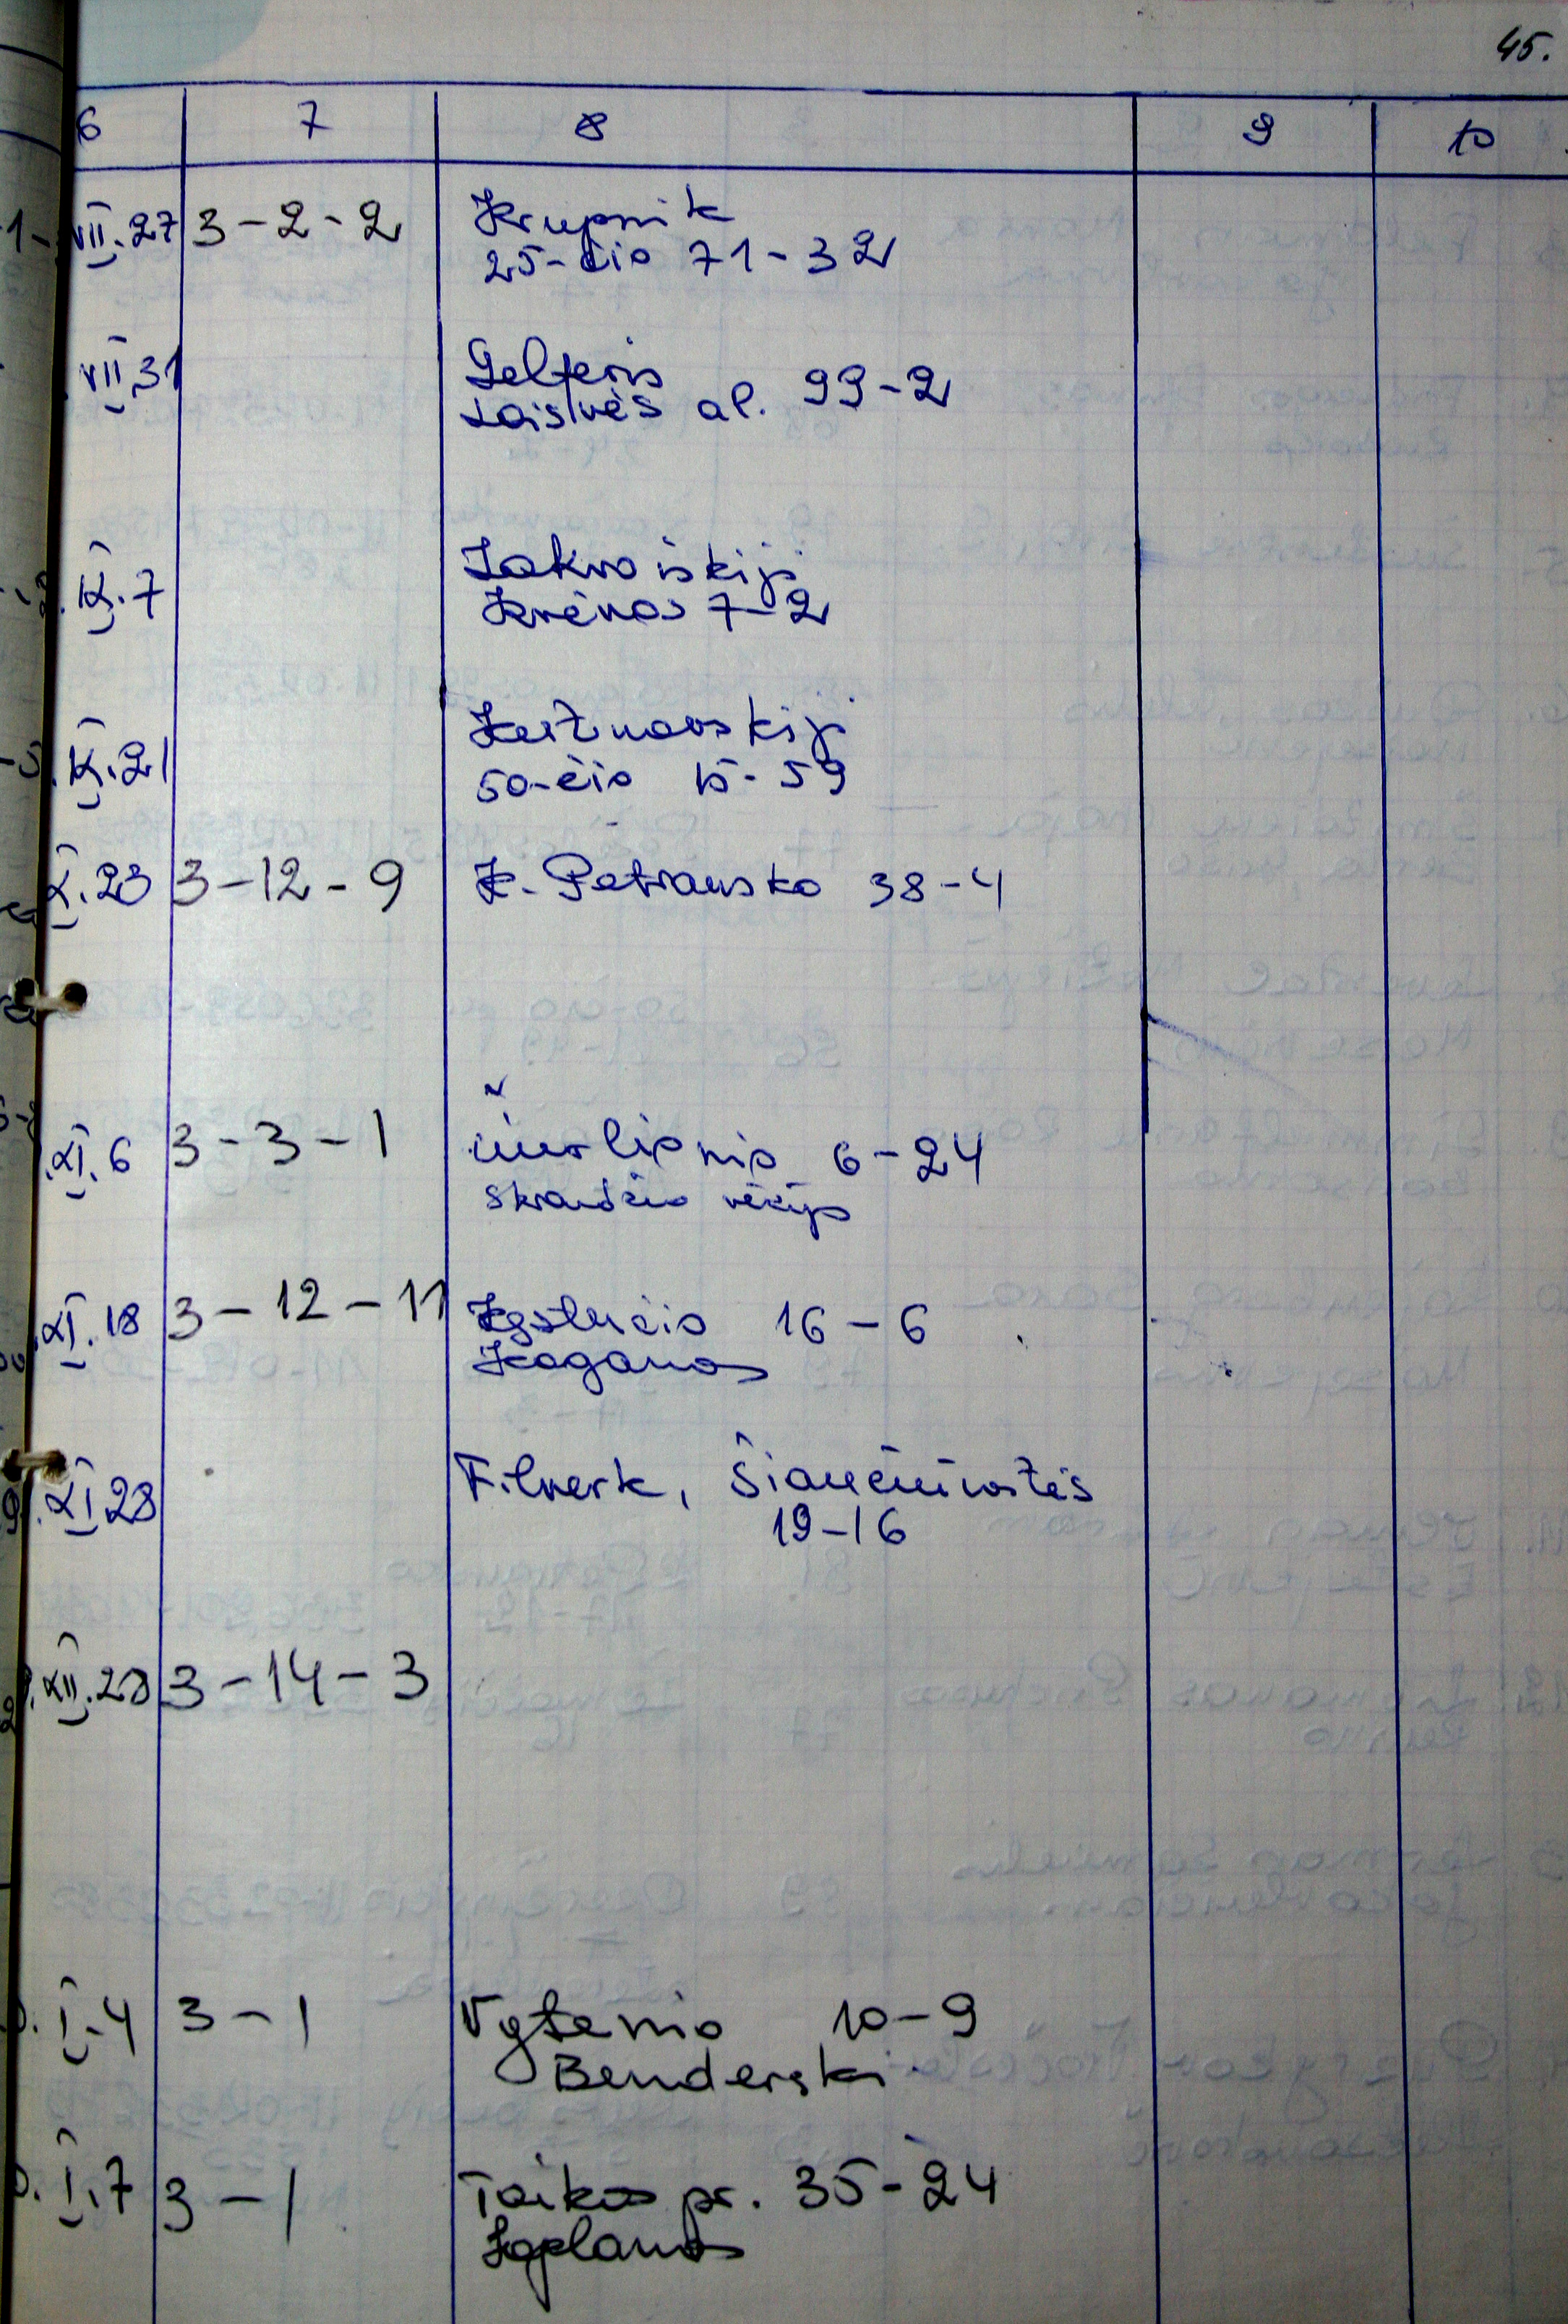 45.
6 7 8 9 10
VII.27 3-2-2 Krupnik
25-čio 71-32
VII.31 Gelferis
Laisvės al. 99-2
IX.7
Krėvos 7-2
IX.21
50-čio 15-59
X.23 3-12-9 K. Petrausko 38-4
XI.6 3-3-1 6-24
XI.18 3-12-11 Kęstučio 16-6
Koganas
XI 28 Filverk,
19-16
XII.28 3-14-3
I.4 3-1 Vytenio 10-9
Benderski
I.7 3-1 Taikos pr. 35-24
Koplanas